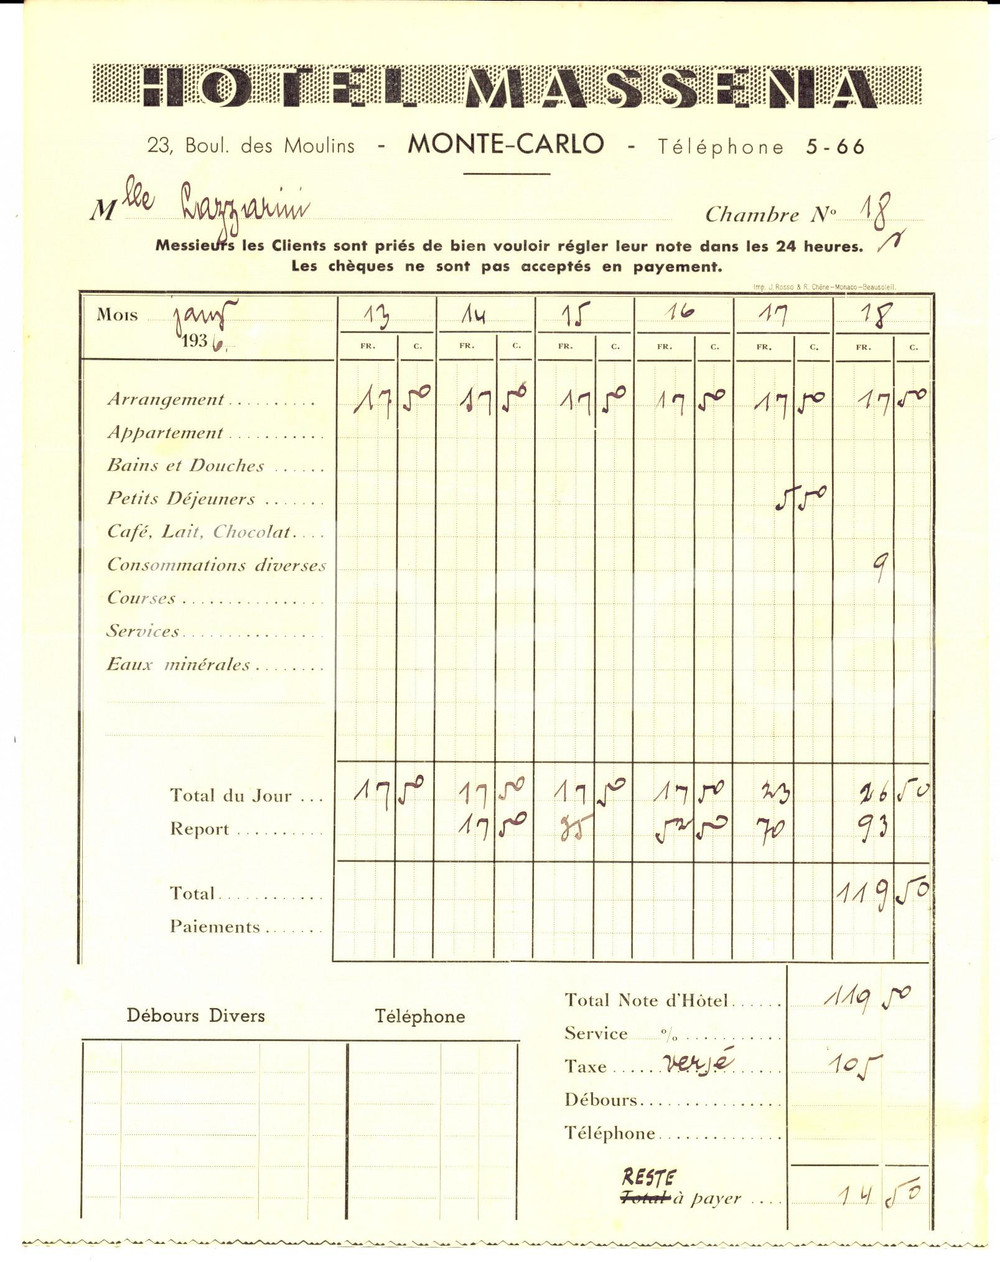 HOTEL MASSENA
23, Boul. des Moulins - MONTE-CARLO - Téléphone 5-66
Mlle Lazzarini Chambre No 18
Messieurs les Clients sont priés de bien vouloir régler leur note dans les 24 heures.
Les chèques ne sont pas acceptés en payement.
Imp. J. Rosso & R. Chêne-Monaco-Beausoleil.
Mois janv 13 14 15 16 17 18
1936. FR. C. FR. C. FR. C. FR. C. FR. C. FR. C.
Arrangement .......... 17 50 17 50 17 50 17 50 17 50 17 50
Appartement ...........
Bains et Douches ......
Petits Déjeuners ....... 5 50
Café, Lait, Chocolat....
Consommations diverses 9
Courses ................
Services................
Eaux minérales ........
Total du Jour ... 17 50 17 50 17 50 17 50 23 26 50
Report .......... 17 50 35 52 50 70 93
Total............ 119 50
Paiements .......
Débours Divers Téléphone
Total Note d'Hôtel...... 119 50
Service % ...........
Taxe ...... versé ...... 105
Débours................
Téléphone..............
RESTE
Total à payer .... 14 50